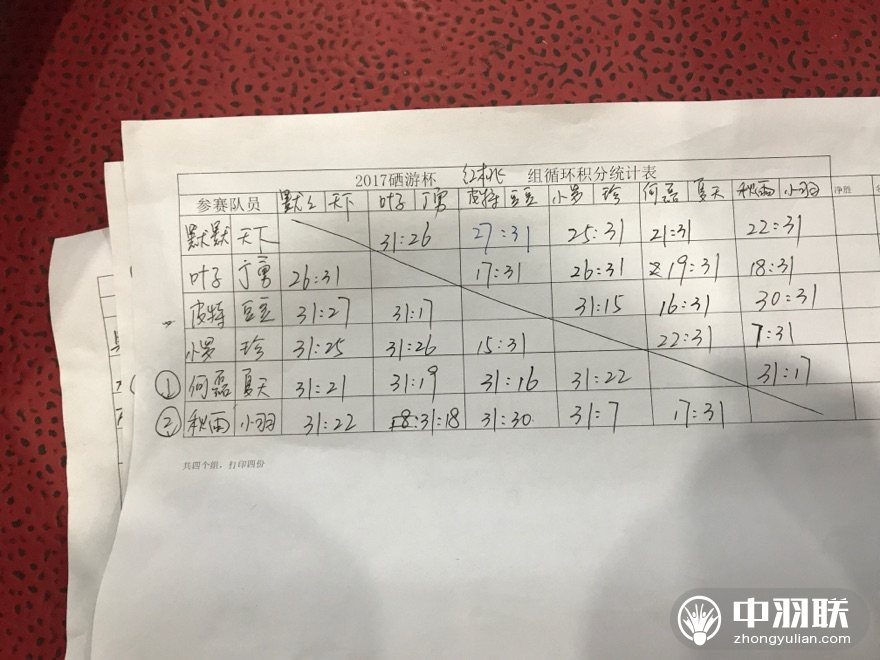 2017硒游杯 红桃 组循环积分统计表
参赛队员 默默 天下 叶子 丁勇 皮特 豆豆 小罗 珍 何磊 夏天 秋雨 小羽 净胜
默默 天下 31:26 27:31 25:31 21:31 22:31
叶子 丁勇 26:31 17:31 26:31 19:31 18:31
皮特 豆豆 31:27 31:17 31:15 16:31 30:31
小罗 珍 31:25 31:26 15:31 22:31 7:31
① 何磊 夏天 31:21 31:19 31:16 31:22 31:17
② 秋雨 小羽 31:22 31:18 31:30 31:7 17:31
共四个组，打印四份
中羽联
zhongyulian.com